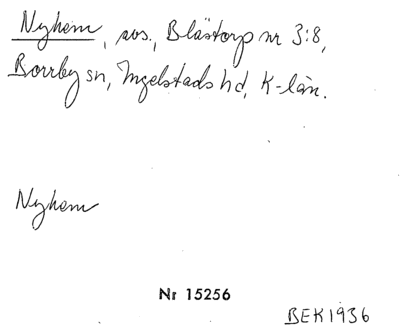 Nyhem, avs., Blästorp nr 3:8,
Borrby sn, Ingelstads hd, K-län.
Nyhem
Nr 15256
BEK1936